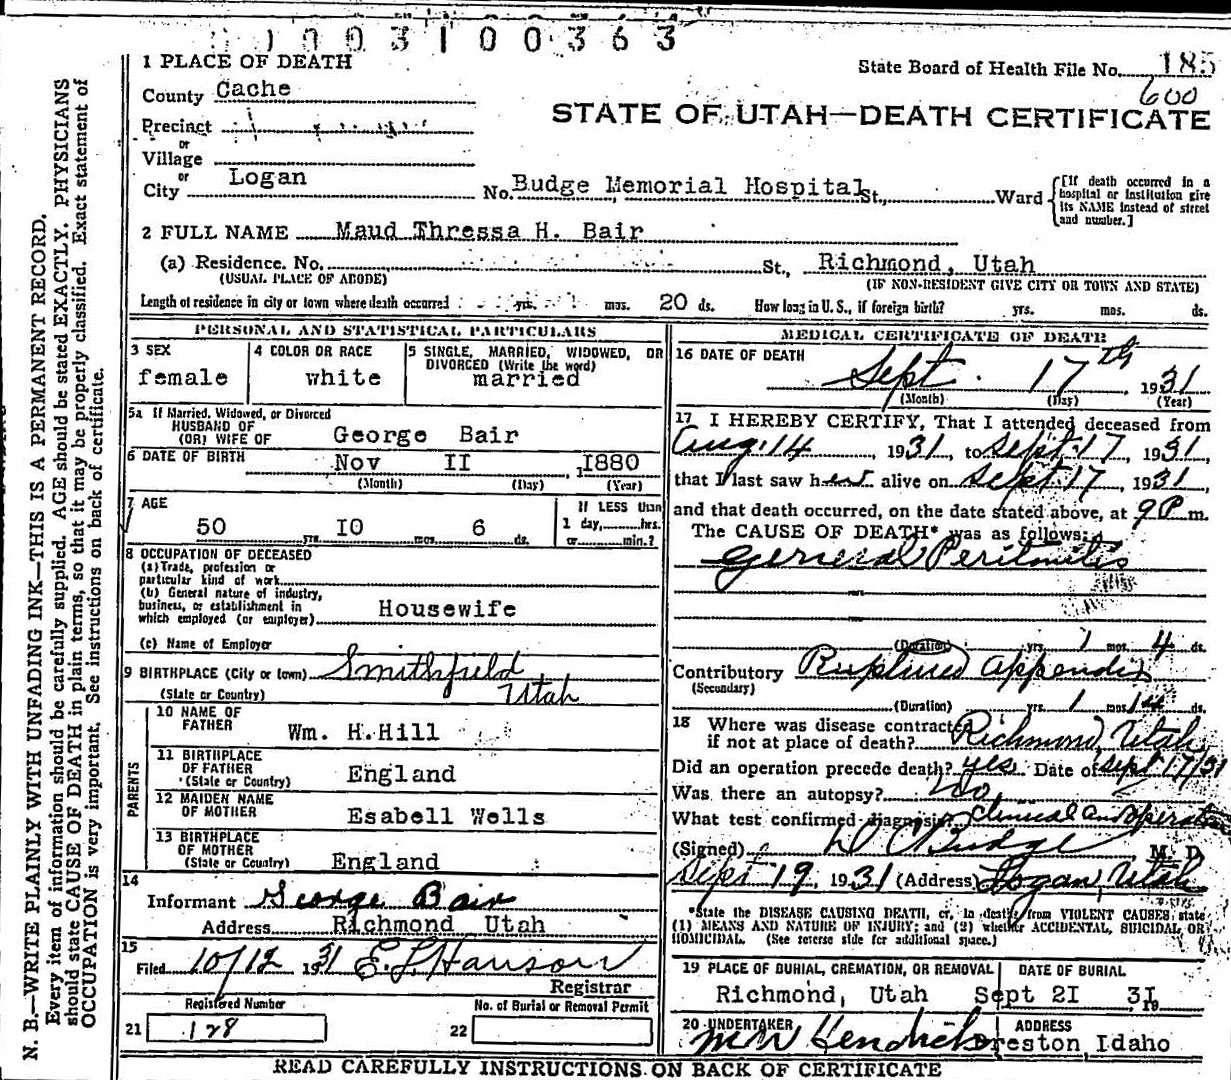 1003100363
1 PLACE OF DEATH
State Board of Health File No. 185
600
County Cache
STATE OF UTAH—DEATH CERTIFICATE
Precinct
or
Village
or
City Logan No. Budge Memorial Hospital St., Ward
[If death occurred in a hospital or institution give its NAME instead of street and number.]
2 FULL NAME Maud Thressa H. Bair
(a) Residence. No. St., Richmond, Utah
(USUAL PLACE OF ABODE) (IF NON-RESIDENT GIVE CITY OR TOWN AND STATE)
Length of residence in city or town where death occurred yrs. mos. 20 ds. How long in U. S., if foreign birth? yrs. mos. ds.
PERSONAL AND STATISTICAL PARTICULARS
3 SEX
female
4 COLOR OR RACE
white
5 SINGLE, MARRIED, WIDOWED, OR
DIVORCED (Write the word)
married
5a If Married, Widowed, or Divorced
HUSBAND OF
(OR) WIFE OF George Bair
6 DATE OF BIRTH Nov II, 1880
(Month) (Day) (Year)
7 AGE
50 yrs. IO mos. 6 ds.
If LESS than
1 day, hrs.
or min.?
8 OCCUPATION OF DECEASED
(a) Trade, profession or
particular kind of work
(b) General nature of industry,
business, or establishment in
which employed (or employer) Housewife
(c) Name of Employer
9 BIRTHPLACE (City or town) Smithfield
(State or Country) Utah
PARENTS
10 NAME OF
FATHER Wm. H. Hill
11 BIRTHPLACE
OF FATHER
(State or Country) England
12 MAIDEN NAME
OF MOTHER Esabell Wells
13 BIRTHPLACE
OF MOTHER
(State or Country) England
14
Informant George Bair
Address Richmond Utah
15
Filed 10/12 1931 E. L. Hanson
Registrar
Registered Number
21 128
No. of Burial or Removal Permit
22
MEDICAL CERTIFICATE OF DEATH
16 DATE OF DEATH
Sept. 17th, 1931
(Month) (Day) (Year)
17 I HEREBY CERTIFY, That I attended deceased from
Aug. 14, 1931, to Sept. 17, 1931,
that I last saw her alive on Sept. 17, 1931,
and that death occurred, on the date stated above, at 9 P m.
The CAUSE OF DEATH* was as follows:
General Peritonitis
(Duration) yrs. 1 mos. 4 ds.
Contributory Ruptured appendix
(Secondary)
(Duration) yrs. 1 mos. 14 ds.
18 Where was disease contracted
if not at place of death? Richmond, Utah
Did an operation precede death? yes Date of Sept 17/31
Was there an autopsy? No
What test confirmed diagnosis clinical and operation
(Signed) D C Budge M. D.
Sept 19, 1931 (Address) Logan, Utah
*State the DISEASE CAUSING DEATH, or, in deaths from VIOLENT CAUSES, state
(1) MEANS AND NATURE OF INJURY; and (2) whether ACCIDENTAL, SUICIDAL, OR
HOMICIDAL. (See reverse side for additional space.)
19 PLACE OF BURIAL, CREMATION, OR REMOVAL
Richmond, Utah
DATE OF BURIAL
Sept 2I 3I 19
20 UNDERTAKER
Hendricks
ADDRESS
Preston, Idaho
READ CAREFULLY INSTRUCTIONS ON BACK OF CERTIFICATE
N. B.—WRITE PLAINLY WITH UNFADING INK—THIS IS A PERMANENT RECORD.
Every item of information should be carefully supplied. AGE should be stated EXACTLY. PHYSICIANS
should state CAUSE OF DEATH in plain terms, so that it may be properly classified. Exact statement of
OCCUPATION is very important. See instructions on back of certificate.